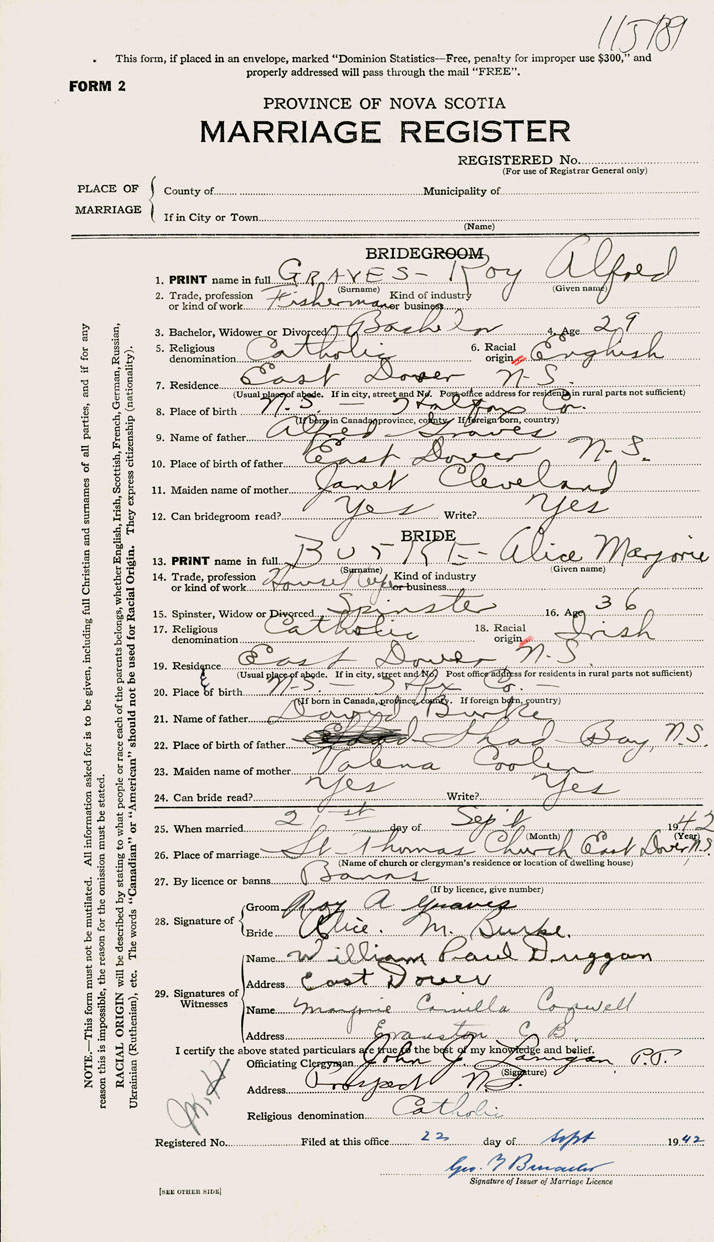 115789
This form, if placed in an envelope, marked "Dominion Statistics—Free, penalty for improper use $300," and
properly addressed will pass through the mail "FREE".
FORM 2
PROVINCE OF NOVA SCOTIA
MARRIAGE REGISTER
REGISTERED No.
(For use of Registrar General only)
PLACE OF MARRIAGE
County of Municipality of
If in City or Town
(Name)
BRIDEGROOM
1. PRINT name in full GRAVES - Roy Alfred
(Surname) (Given name)
2. Trade, profession or kind of work Fisherman Kind of industry or business
3. Bachelor, Widower or Divorced Bachelor 4. Age 29
5. Religious denomination Catholic 6. Racial origin English
7. Residence East Dover N.S.
(Usual place of abode. If in city, street and No. Post office address for residents in rural parts not sufficient)
8. Place of birth N.S. - Halifax Co.
(If born in Canada, province, county. If foreign born, country)
9. Name of father Alfred Graves
10. Place of birth of father East Dover N-S.
11. Maiden name of mother Janet Cleveland
12. Can bridegroom read? Yes Write? Yes
BRIDE
13. PRINT name in full BURKE - Alice Marjorie
(Surname) (Given name)
14. Trade, profession or kind of work Housekeeper Kind of industry or business
15. Spinster, Widow or Divorced Spinster 16. Age 36
17. Religious denomination Catholic 18. Racial origin Irish
19. Residence East Dover N.S.
(Usual place of abode. If in city, street and No. Post office address for residents in rural parts not sufficient)
20. Place of birth N-S. - Hfx Co. -
(If born in Canada, province, county. If foreign born, country)
21. Name of father David Burke
22. Place of birth of father Shad Bay, N.S.
23. Maiden name of mother Valena Coolen
24. Can bride read? Yes Write? Yes
25. When married 21st day of Sept 1942
(Month) (Year)
26. Place of marriage St-Thomas Church East Dover, N.S.
(Name of church or clergyman's residence or location of dwelling house)
27. By licence or banns Banns
(If by licence, give number)
28. Signature of
Groom Roy A Graves
Bride Alice. M. Burke.
29. Signatures of Witnesses
Name William Paul Duggan
Address East Dover
Name Marjorie Camilla
Address Evanston C B.
I certify the above stated particulars are true to the best of my knowledge and belief.
Officiating Clergyman John J. Lanigan P.P.
(Signature)
Address Prospect N.S.
Religious denomination Catholic
Registered No. Filed at this office 22 day of Sept 1942
Geo.
Signature of Issuer of Marriage Licence
[SEE OTHER SIDE]
NOTE.—This form must not be mutilated. All information asked for is to be given, including full Christian and surnames of all parties, and if for any
reason this is impossible, the reason for the omission must be stated.
RACIAL ORIGIN will be described by stating to what people or race each of the parents belongs, whether English, Irish, Scottish, French, German, Russian,
Ukrainian (Ruthenian), etc. The words "Canadian" or "American" should not be used for Racial Origin. They express citizenship (nationality).